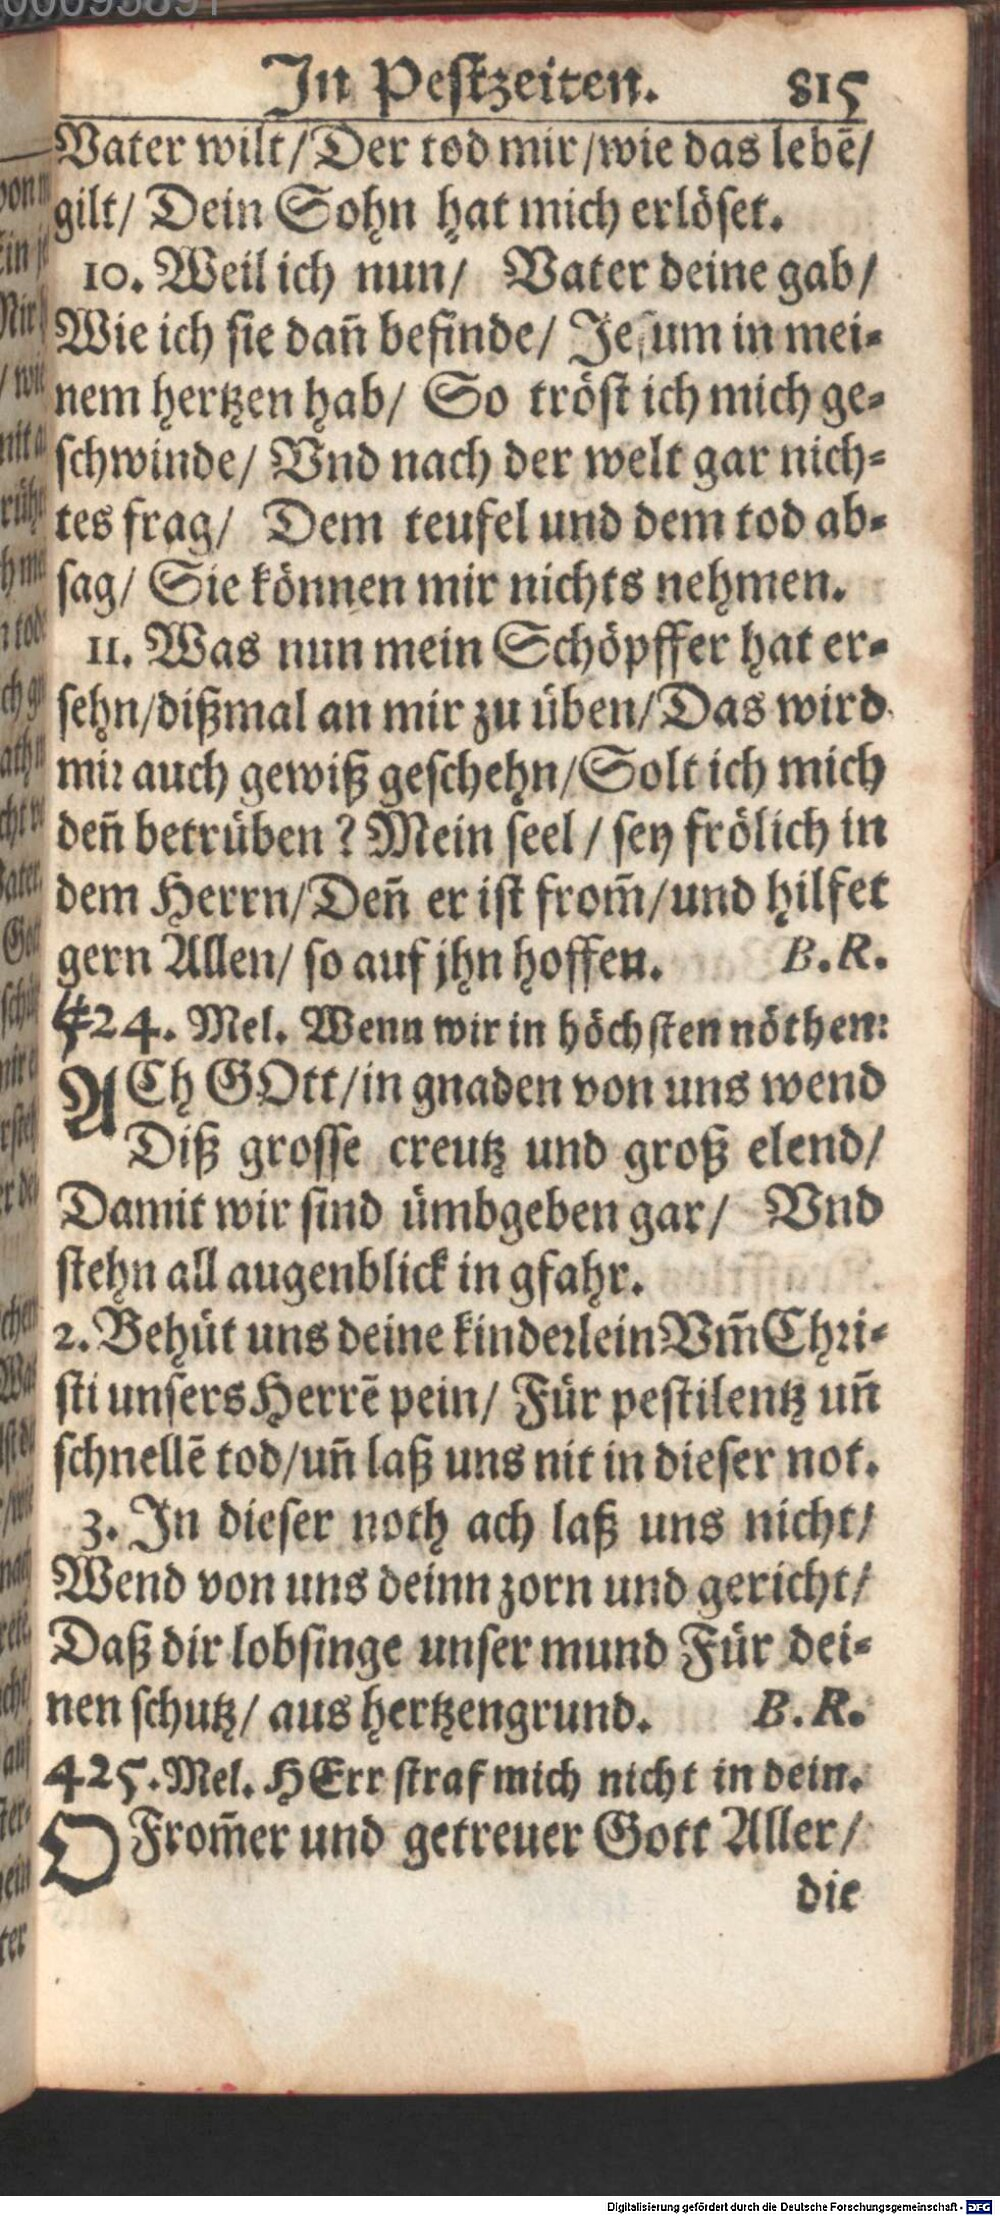 In Pestzeiten. 815
Vater wilt/ Der tod mir/wie das lebē/
gilt/ Dein Sohn hat mich erlöset.
10. Weil ich nun/ Vater deine gab/
Wie ich sie dañ befinde/ Jesum in mei-
nem hertzen hab/ So tröst ich mich ge-
schwinde/ Vnd nach der welt gar nich-
tes frag/ Dem teufel und dem tod ab-
sag/ Sie können mir nichts nehmen.
11. Was nun mein Schöpffer hat er-
sehn/dißmal an mir zu üben/Das wird
mir auch gewiß geschehn/Solt ich mich
deñ betrüben? Mein seel/ sey frölich in
dem Herrn/Deñ er ist from̃/und hilfet
gern Allen/ so auf jhn hoffen. B.R.
424. Mel. Wenn wir in höchsten nöthen:
ACh GOtt/in gnaden von uns wend
Diß grosse creutz und groß elend/
Damit wir sind ümbgeben gar/ Vnd
stehn all augenblick in gfahr.
2. Behüt uns deine kinderlein Vm̃ Chri-
sti unsers Herrē pein/ Für pestilentz uñ
schnellē tod/uñ laß uns nit in dieser not.
3. In dieser noth ach laß uns nicht/
Wend von uns deinn zorn und gericht/
Daß dir lobsinge unser mund Für dei-
nen schutz/ aus hertzengrund. B.R.
425. Mel. HErr straf mich nicht in dein.
O From̃er und getreuer Gott Aller/
die
Digitalisierung gefördert durch die Deutsche Forschungsgemeinschaft - DFG